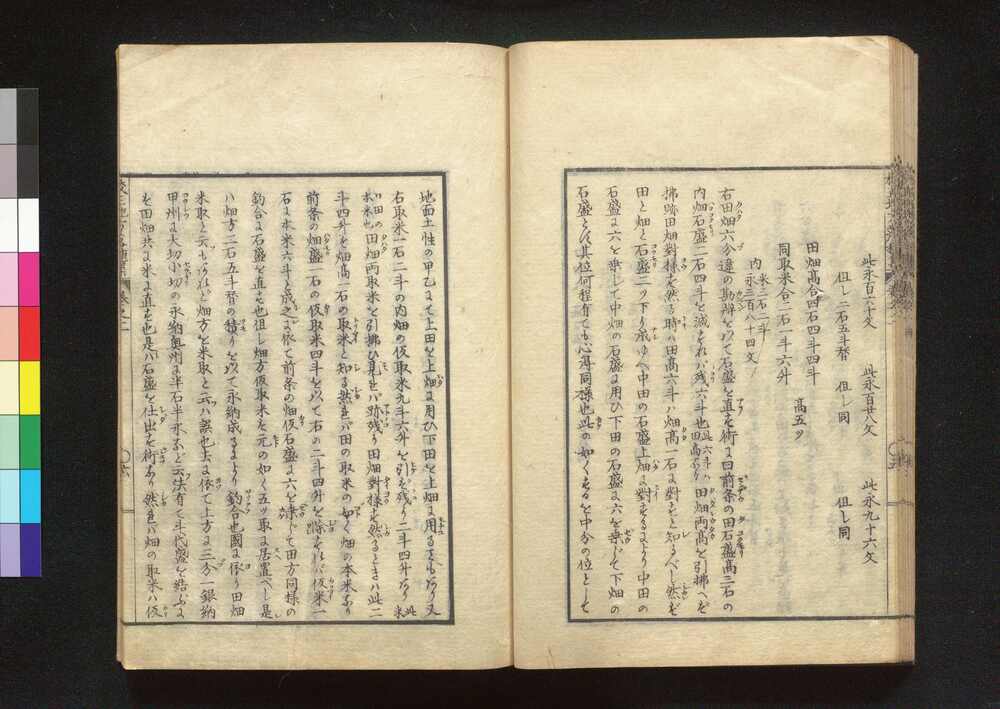 此永百六十文　此永百廿八文　此永九十六文
但し二石五斗替　但し同　但し同
田畑高合四石四斗四升　高五ツ
同取米合二石一斗六升
内
米二石一斗
永三百八十四文
右田畑六分違の勘辨を以て石盛を直す術に曰前条の田石盛高三石の
内畑石盛二石四斗を減ずれバ残六斗也此六斗ハ田高石ゟ田畑両高を引拂へバ
拂跡田畑對様を然る時ハ田高六斗ハ畑高一石に對すと知るべし然れば
田と畑と石盛二ツ下り成ゆへ中田の石盛上畑に對するより中田の
石盛に六を乗じて中畑の石盛に用ひ下田の石盛に六を乗じて下畑の
石盛とす其位何程有ても心得同様也此の如くするを中分の位として
地面土性の甲乙にて上田を上畑に用ひ下田を上畑に用るともあり又
右取米一石二斗の内畑の仮取米九斗六升を引き残り二斗四升あり此米
本米也田の田畑両取米を引拂ひ見れバ跡残り田畑對様す然るときハ此二
斗四升を畑高一石の取米と知る然れバ田の取米の如く畑の本米あり
前条の畑盛一石の仮取米四斗を以て右の二斗四升を除すれバ仮米一
石に本米六斗と成之に依て前条の畑仮石盛に六を乗じて田方同様の
釣合に石盛を直す也但し畑方仮取米を元の如く五ツ取に居置べし是
ハ畑方二石五斗替の積りを以て永納成るより釣合也國に依り田畑
米取と云もあれバ畑方を米取と云ハ誤也夫に依て上方に三分一銀納
甲州に大切小切の永納奥州に半石半永など云法有て斗代盛を結ぶに
を田畑共に米に直す也是ハ石盛を仕出す術あり然れバ畑の取米ハ仮